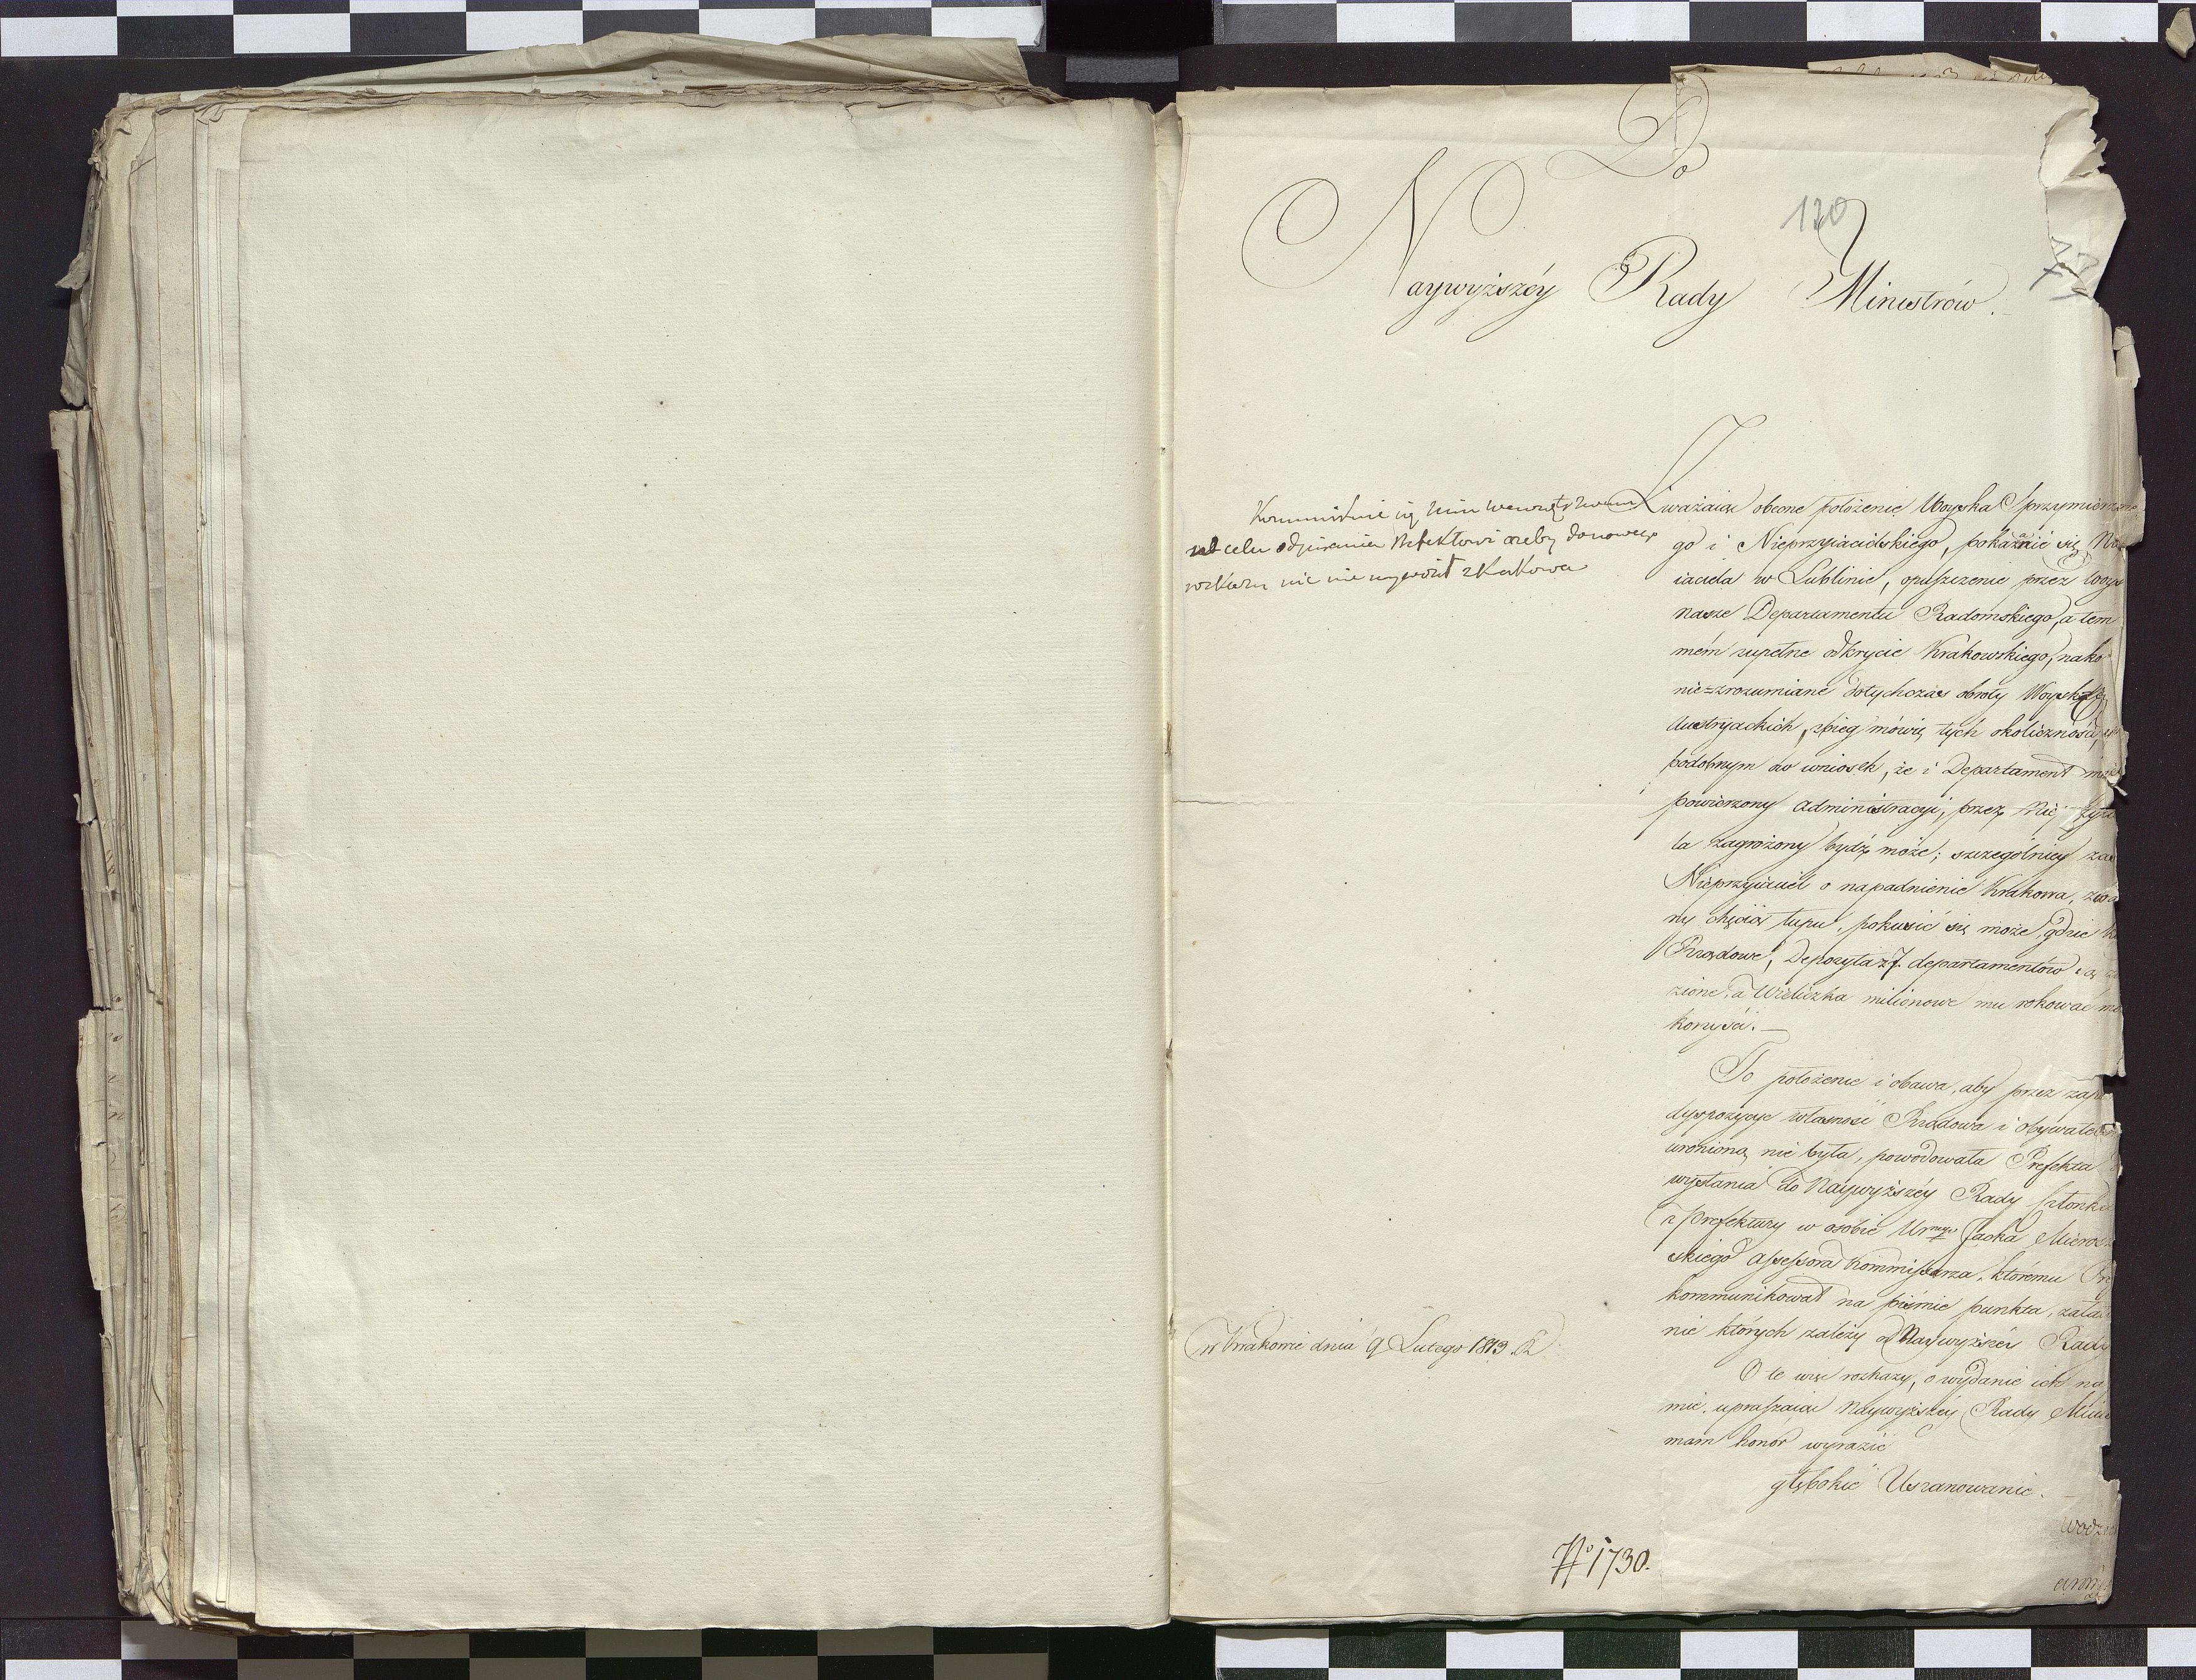 Do
120
Naywyższéy Rady Ministrów.
Kommunikuie się Min Wewnętrznemu
w celu odpisania Prefektowi ażeby do nowego
rozkazu nic nie wywoził z Krakowa
Uważaiąc obecne położenie Woyska Sprzymierzone
go i Nieprzyiacielskiego, pokazanie się
iaciela w Lublinie, opuszczenie przez Woysko
nasze Departamentu Radomskiego, a tem
mém zupełne odkrycie Krakowskiego, nako
nie=zrozumiane dotychczas obroty Woysk
Austryackich, zbieg mówię tych okoliczności,
podobnym do wniosek, że i Departament
powierzony administracyi, przez
la zagrożony bydź może; szczególniey zaś
Nieprzyiaciel o napadnienie Krakowa,
ny chęcią łupu, pokusić się może, gdzie
Rządowe, Depozyta z 7. departamentów są
zione, a Wieliczka milionowe mu rokować
korzyści. —
To położenie i obawa, aby przez
dyspozycye własność Rządowa i obywatel
uroniona nie była, powodowała Prefekta
wysłania do Naywyższéy Rady Członka
z Prefektury w osobie Ur<sup>nego</sup> Jacka Mieros
skiego Assessora Kommissarza, któremu
kommunikował na piśmie punkta, załat
nie których zależy od Naywyższéy Rady
W Krakowie dnia 9 Lutego 1813. R.
O te więc rozkazy, o wydanie ich
mie. upraszaiąc Naywyższéy Rady
mam honor wyrazić
głębokie Uszanowanie. —
Wodz
N<sup>o</sup> 1730.